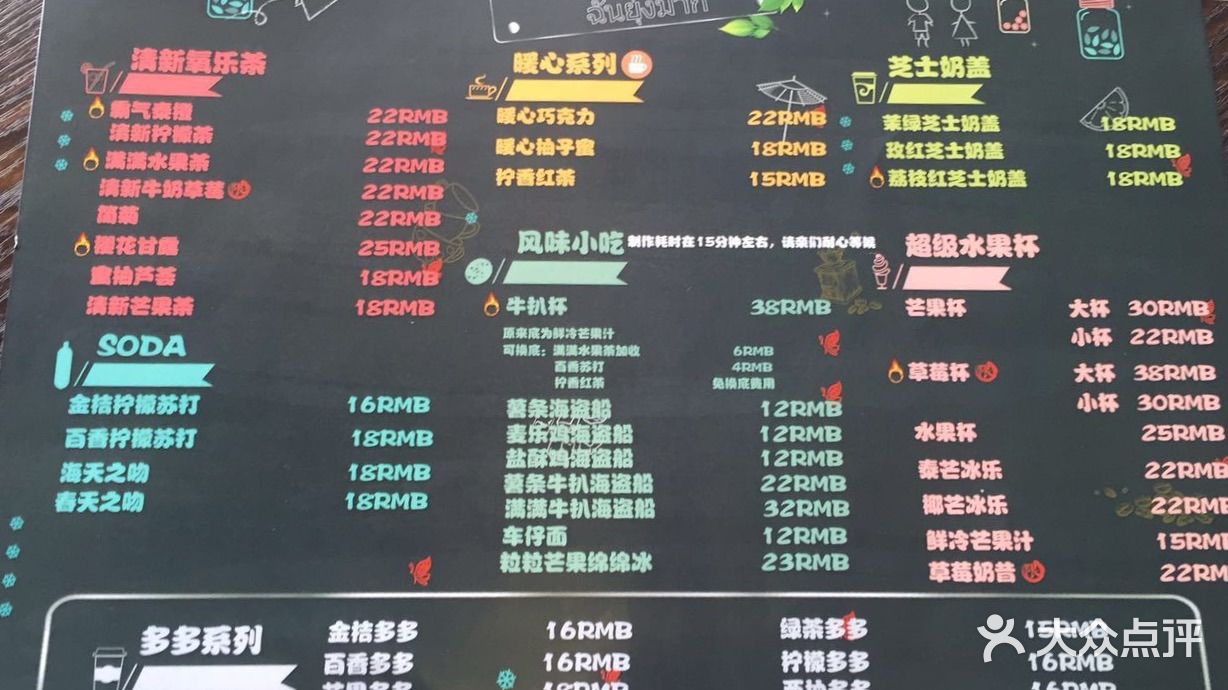 ฉันยุ่งมาก
清新氧乐茶
霸气泰橙 22RMB
清新柠檬茶 22RMB
满满水果茶 22RMB
清新牛奶草莓 22RMB
茴菊 22RMB
樱花甘露 25RMB
蜜柚芦荟 18RMB
清新芒果茶 18RMB
SODA
金桔柠檬苏打 16RMB
百香柠檬苏打 18RMB
海天之吻 18RMB
春天之吻 18RMB
暖心系列
暖心巧克力 22RMB
暖心柚子蜜 18RMB
柠香红茶 15RMB
风味小吃 制作耗时在15分钟左右，请亲们耐心等候
牛扒杯 38RMB
原来底为鲜冷芒果汁
可换底：满满水果茶加收 6RMB
百香苏打 4RMB
柠香红茶 免换底费用
薯条海盗船 12RMB
麦乐鸡海盗船 12RMB
盐酥鸡海盗船 12RMB
薯条牛扒海盗船 22RMB
满满牛扒海盗船 32RMB
车仔面 12RMB
粒粒芒果绵绵冰 23RMB
芝士奶盖
茉绿芝士奶盖 18RMB
玫红芝士奶盖 18RMB
荔枝红芝士奶盖 18RMB
超级水果杯
芒果杯 大杯 30RMB
小杯 22RMB
草莓杯 大杯 38RMB
小杯 30RMB
水果杯 25RMB
泰芒冰乐 22RMB
椰芒冰乐 22RM
鲜冷芒果汁 15RM
草莓奶昔 22RM
多多系列
金桔多多 16RMB
百香多多 16RMB
芒果多多 18RMB
绿茶多多 15RMB
柠檬多多 16RMB
16RMB
大众点评